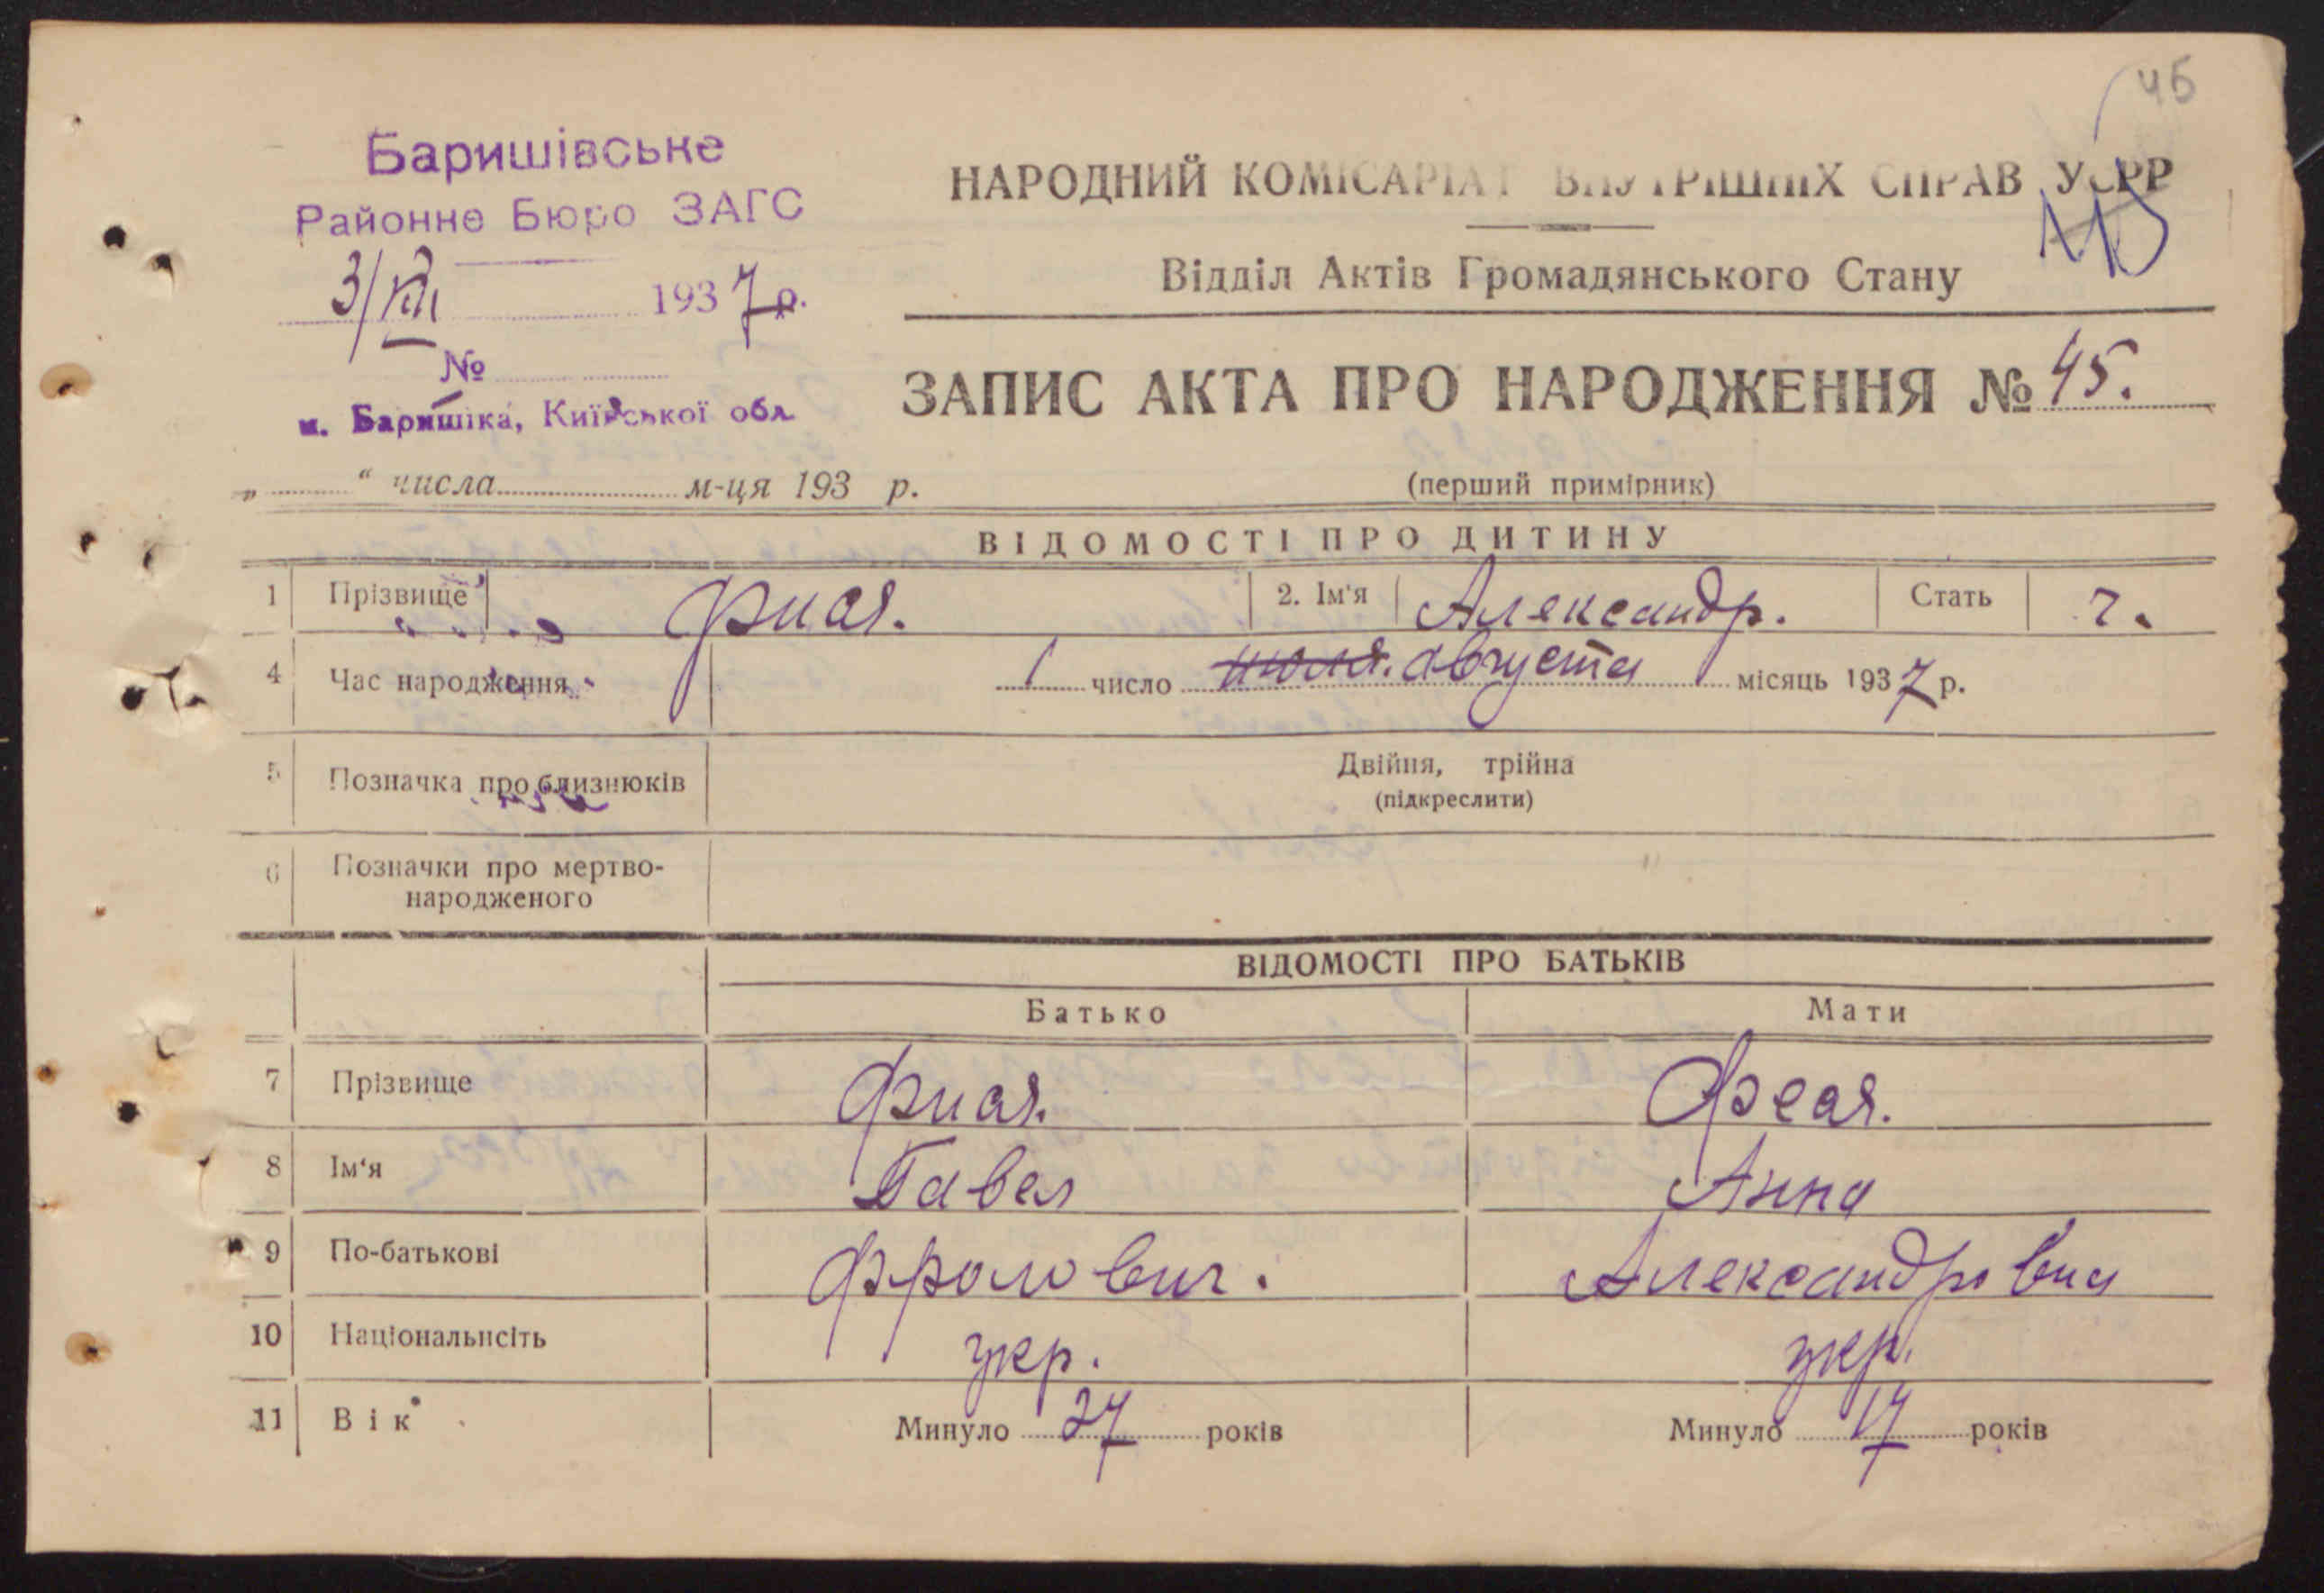 45
Баришівське
Районне Бюро ЗАГС
3/VIII 1937 р.
№
м. Баришівка, Київської обл
НАРОДНИЙ КОМІСАРІАТ ВНУТРІШНІХ СПРАВ УСРР
Відділ Актів Громадянського Стану
ЗАПИС АКТА ПРО НАРОДЖЕННЯ № 45.
„ “ числа м-ця 193 р.
(перший примірник)
ВІДОМОСТІ ПРО ДИТИНУ
1 Прізвище 2. Ім'я Александр. Стать ч.
4 Час народження 1 число июля. августа місяць 1937 р.
5 Позначка про близнюків Двійня, трійна
(підкреслити)
6 Позначки про мертво-
народженого
ВІДОМОСТІ ПРО БАТЬКІВ
Батько Мати
7 Прізвище
8 Ім‘я Павел Анна
9 По-батькові Фролович. Александровна
10 Національнсіть укр. укр.
11 Вік Минуло 27 років Минуло 17 років